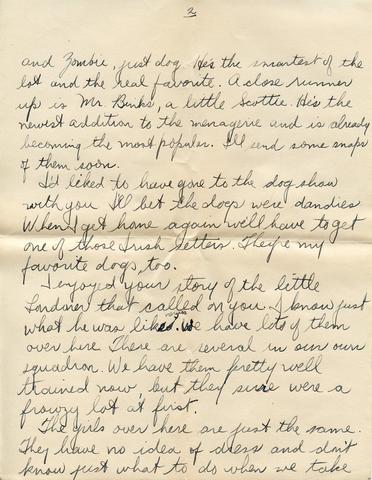 2
and Zombie, just dog. He's the smartest of the
lot and the real favorite. A close runner
up is Mr. Binks, a little Scottie. He's the
newest addition to the menagerie and is already
becoming the most popular. I'll send some snaps
of them soon.
I'd liked to have gone to the dog show
with you I'll bet the dogs were dandies
When I get home again we'll have to get
one of those Irish Setters. They're my
favorite dogs, too.
I enjoyed your story of the little
Londoner that called on you. I know just
what he was like. We have lots of them
over here There are several in our own
squadron. We have them pretty well
trained now, but they sure were a
frowzy lot at first.
The girls over here are just the same.
They have no idea of dress and don't
know just what to do when we take